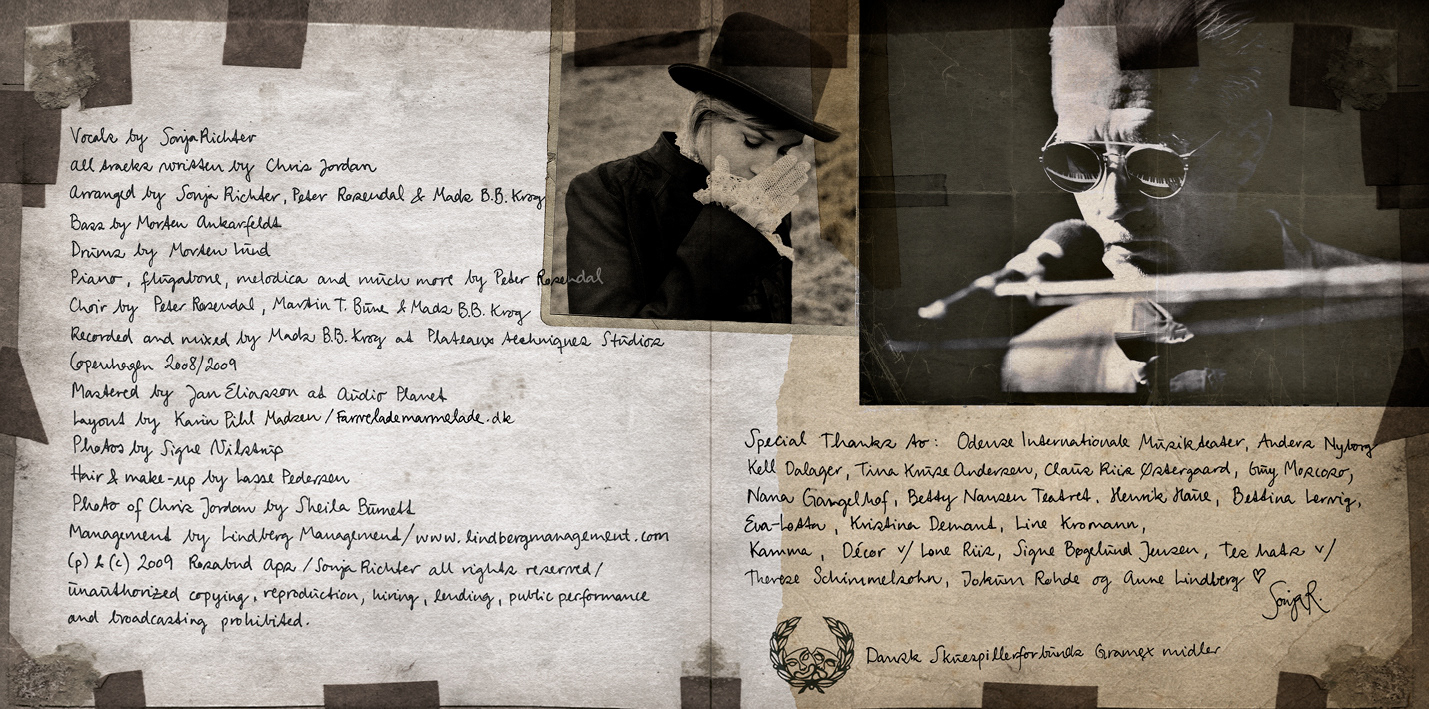 Vocals by Sonja Richter
all tracks written by Chris Jordan
Arranged by Sonja Richter, Peter Rosendal & Mads B.B. Krog
Bass by Morten Ankarfeldt
Drums by Morten Lund
Piano, flugabone, melodica and much more by Peter Rosendal
Choir by Peter Rosendal, Martin T. Bune & Mads B.B. Krog
Recorded and mixed by Mads B.B. Krog at Plateaux techniques Studios
Copenhagen 2008/2009
Mastered by Jan Eliasson at Audio Planet
Layout by Karin Pihl Madsen / Farvelademarmelade.dk
Photos by Signe Vilstrup
Hair & make-up by Lasse Pedersen
Photo of Chris Jordan by Sheila Burnett
Management by Lindberg Management/www.lindbergmanagement.com
(p) & (c) 2009 Rosabud Aps / Sonja Richter all rights reserved/
unauthorized copying, reproduction, hiring, lending, public performance
and broadcasting prohibited.
Special Thanks to: Odense Internationale Musikteater, Anders Nyborg
Kell Dalager, Tina Kruse Andersen, Claus Riis Østergaard, Guy Moscoso,
Nana Gangelhof, Betty Nansen Teatret. Henrik Haue, Bettina Lervig,
Eva-Lotta, Kristina Demant, Line Kromann,
Kamma, Décor v/ Lone Riis, Signe Bøgelund Jensen, Tes hats v/
Therese Schimmelsohn, Jokum Rohde og Anne Lindberg ♡
Sonja R.
Dansk Skuespillerforbunds Gramex midler